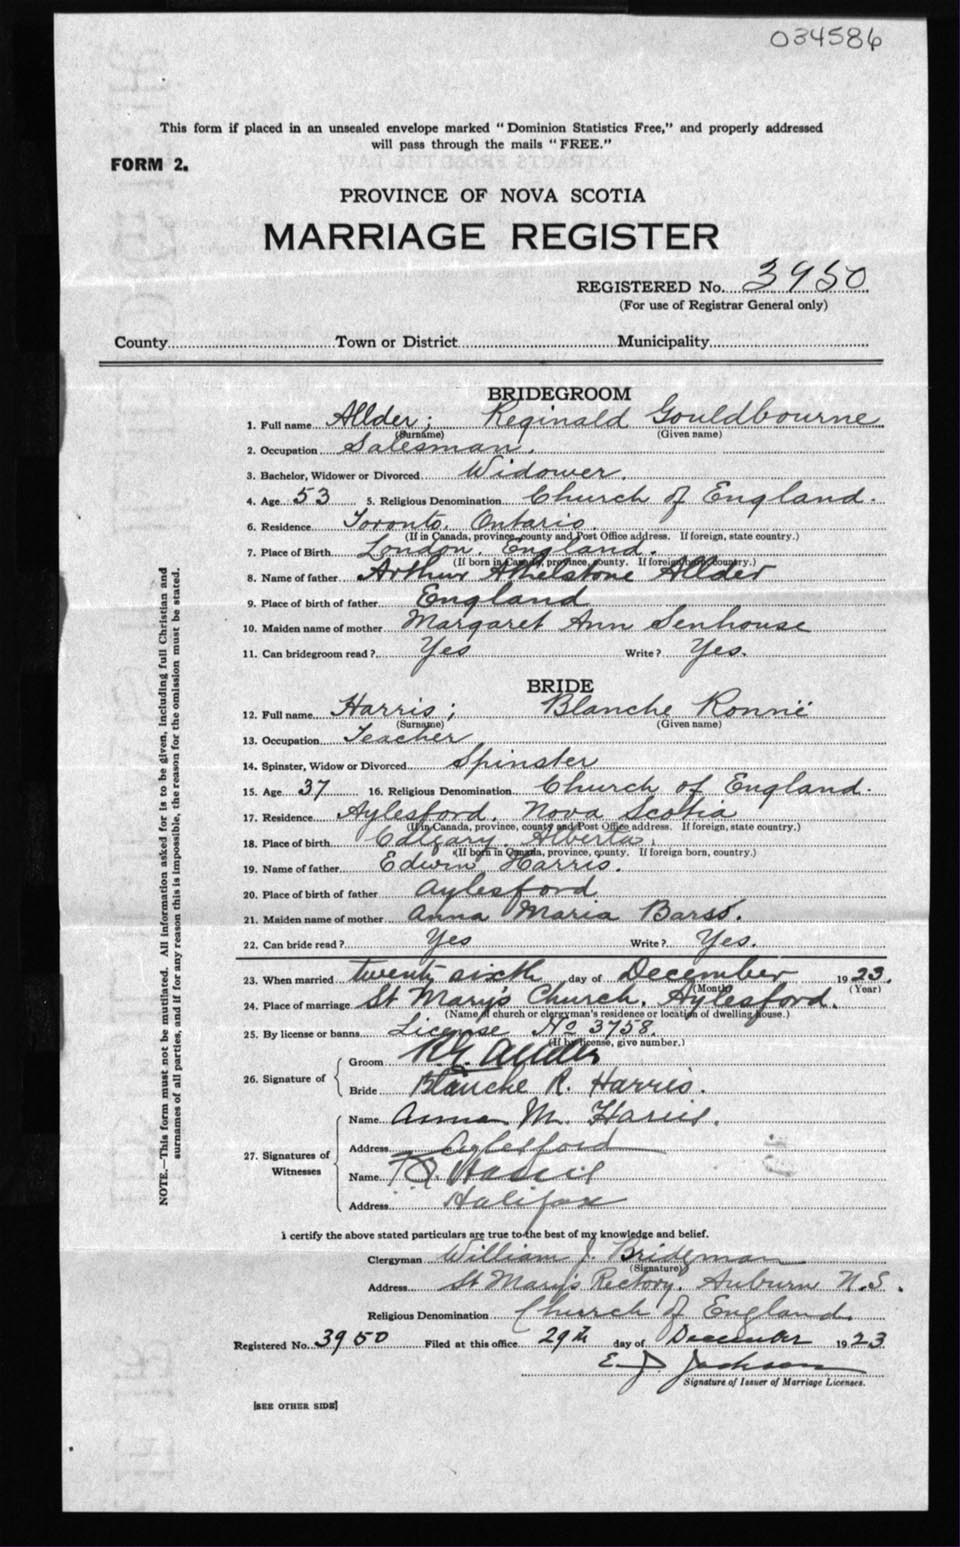 034586
This form if placed in an unsealed envelope marked "Dominion Statistics Free," and properly addressed
will pass through the mails "FREE."
FORM 2.
PROVINCE OF NOVA SCOTIA
MARRIAGE REGISTER
REGISTERED No. 3950
(For use of Registrar General only)
County Town or District Municipality
BRIDEGROOM
1. Full name Allder; Reginald Gouldbourne
(Surname) (Given name)
2. Occupation Salesman.
3. Bachelor, Widower or Divorced Widower.
4. Age 53 5. Religious Denomination Church of England.
6. Residence Toronto. Ontario.
(If in Canada, province, county and Post Office address. If foreign, state country.)
7. Place of Birth London. England.
(If born in Canada, province, county. If foreign born, country.)
8. Name of father Arthur Athelstone Allder
9. Place of birth of father England
10. Maiden name of mother Margaret Ann Senhouse
11. Can bridegroom read? Yes Write? Yes.
BRIDE
12. Full name Harris; Blanche Ronnie
(Surname) (Given name)
13. Occupation Teacher
14. Spinster, Widow or Divorced Spinster
15. Age 37 16. Religious Denomination Church of England.
17. Residence Aylesford. Nova Scotia
(If in Canada, province, county and Post Office address. If foreign, state country.)
18. Place of birth Calgary. Alberta.
(If born in Canada, province, county. If foreign born, country.)
19. Name of father Edwin Harris.
20. Place of birth of father Aylesford
21. Maiden name of mother Anna Maria Barss.
22. Can bride read? Yes Write? Yes.
23. When married twenty sixth day of December 1923.
(Month) (Year)
24. Place of marriage St Mary's Church. Aylesford.
(Name of church or clergyman's residence or location of dwelling house.)
25. By license or banns License No 3758.
(If by license, give number.)
26. Signature of Groom R.G. Allder
Bride Blanche R. Harris.
27. Signatures of Witnesses
Name Anna M. Harris.
Address Aylesford
Name
Address Halifax
I certify the above stated particulars are true to the best of my knowledge and belief.
Clergyman William J. Bridgman
(Signature)
Address St Mary's Rectory. Auburn N.S.
Religious Denomination Church of England.
Registered No. 3950 Filed at this office 29th day of December 1923
E. J. Jackson
Signature of Issuer of Marriage Licenses.
[SEE OTHER SIDE]
NOTE.—This form must not be mutilated. All information asked for is to be given, including full Christian and
surnames of all parties, and if for any reason this is impossible, the reason for the omission must be stated.